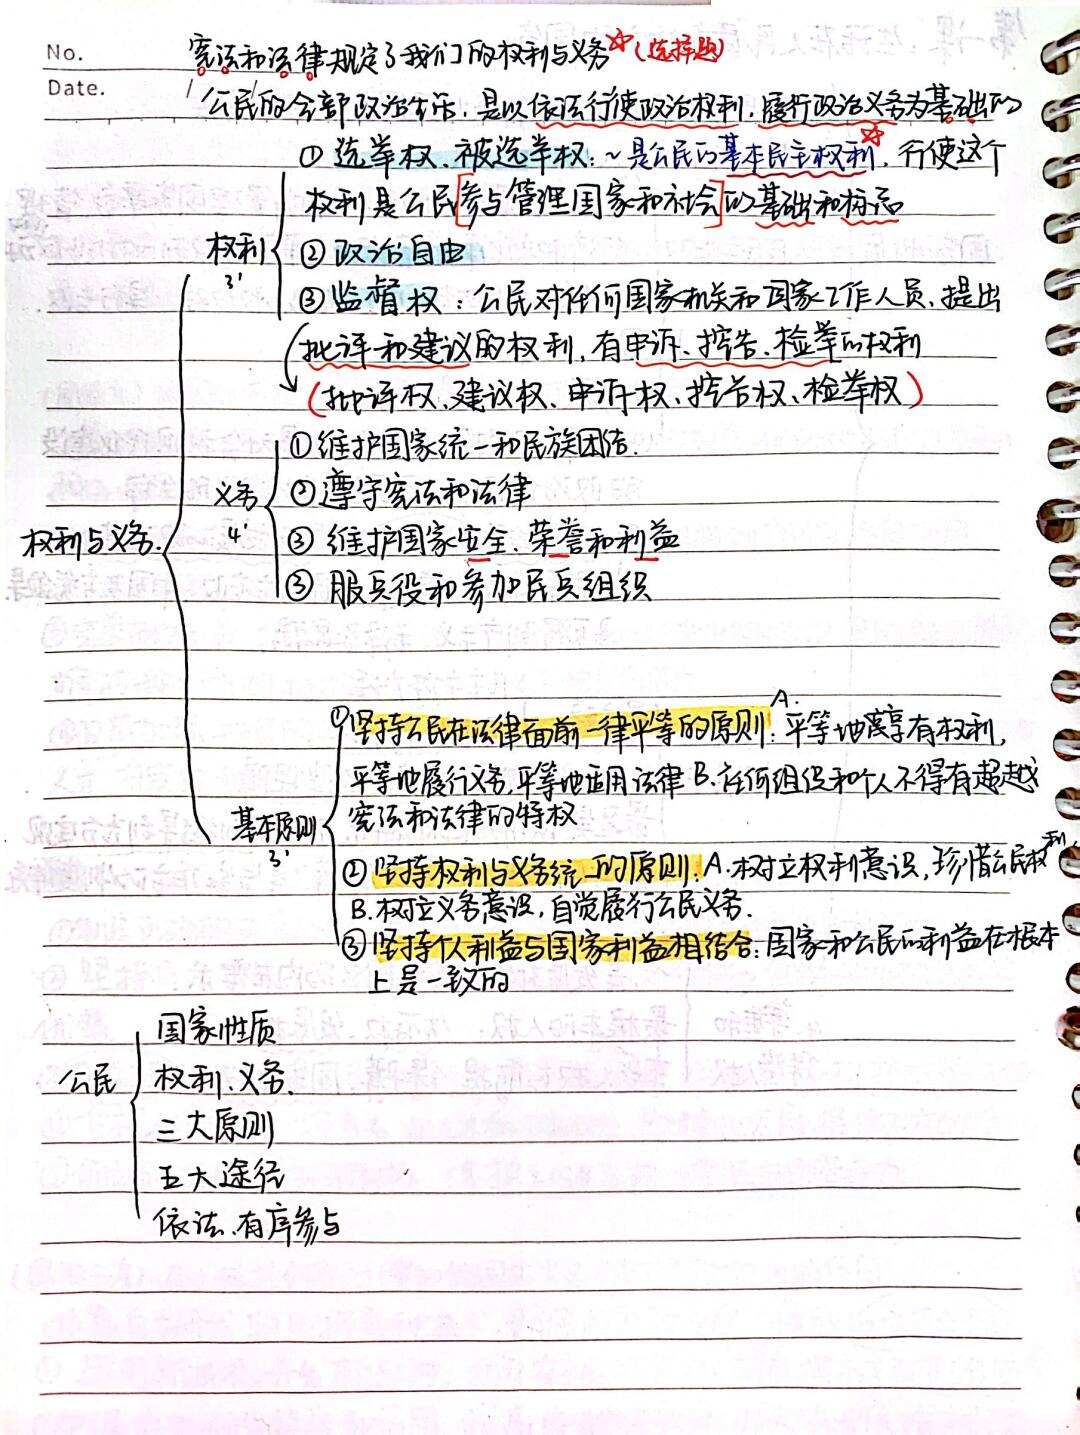 No.
宪法和法律规定了我们的权利与义务☆(选择题)
Date. / /
公民的全部政治生活,是以依法行使政治权利、履行政治义务为基础的
①选举权、被选举权:~是公民的基本民主权利☆,行使这个
权利是公民[参与管理国家和社会]的基础和标志
权利
3'
②政治自由
③监督权:公民对任何国家机关和国家工作人员、提出
批评和建议的权利,有申诉、控告、检举的权利
(批评权、建议权、申诉权、控告权、检举权)
①维护国家统一和民族团结.
义务
4'
②遵守宪法和法律
权利与义务
③维护国家安全、荣誉和利益
③服兵役和参加民兵组织
①坚持公民在法律面前一律平等的原则:A.平等地享有权利,
平等地履行义务,平等地适用法律B.任何组织和个人不得有超越
基本原则
3'
宪法和法律的特权
②坚持权利与义务统一的原则:A.树立权利意识,珍惜公民权利
B.树立义务意识,自觉履行公民义务.
③坚持个人利益与国家利益相结合:国家和公民的利益在根本
上是一致的
公民
国家性质
权利、义务.
三大原则
五大途径
依法、有序参与